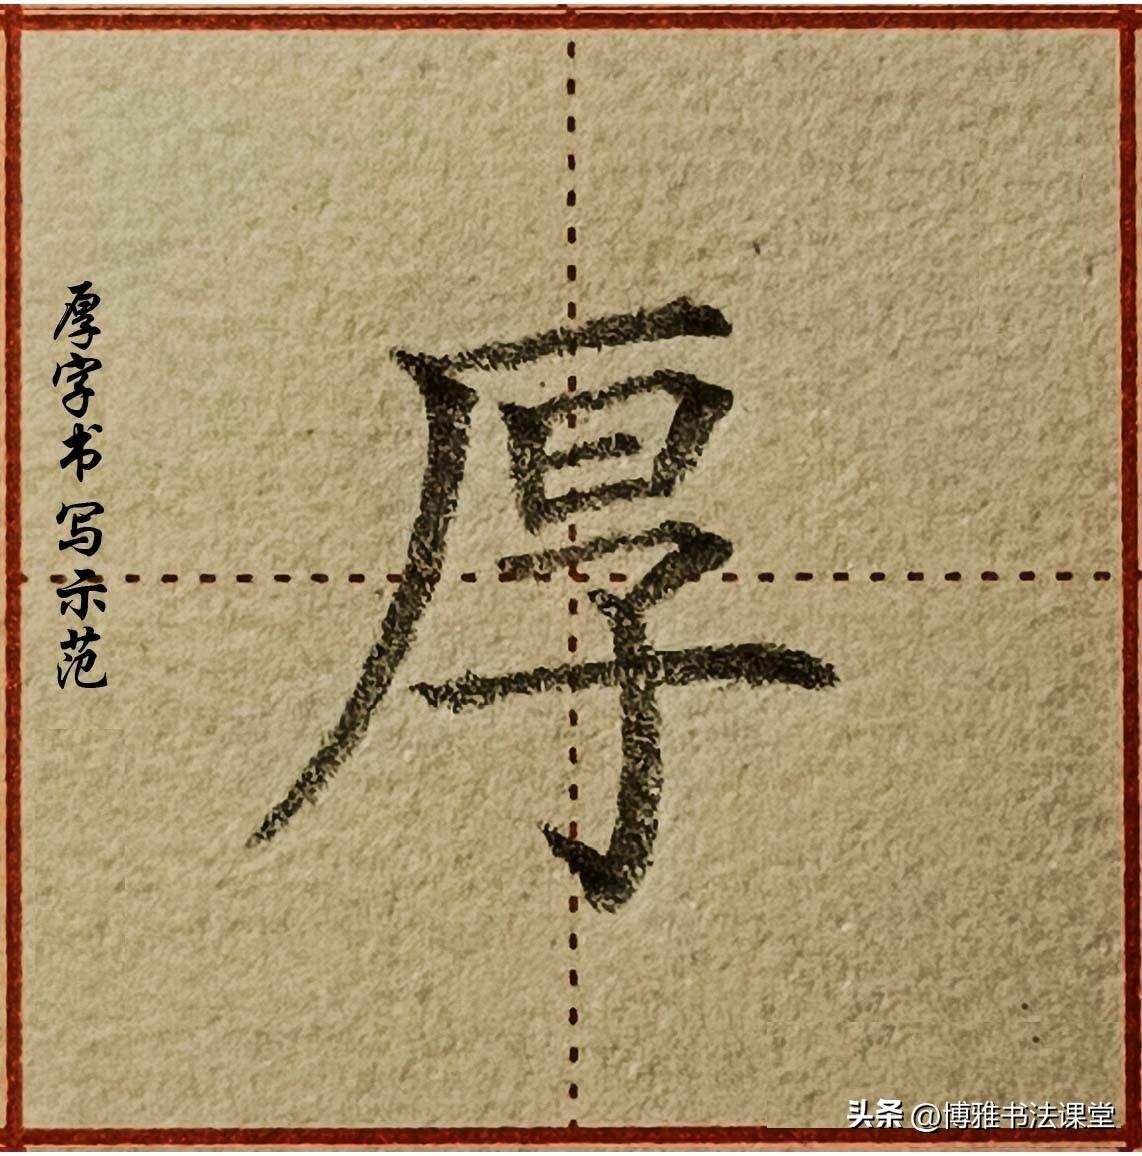 厚字书写示范
厚
头条 @博雅书法课堂